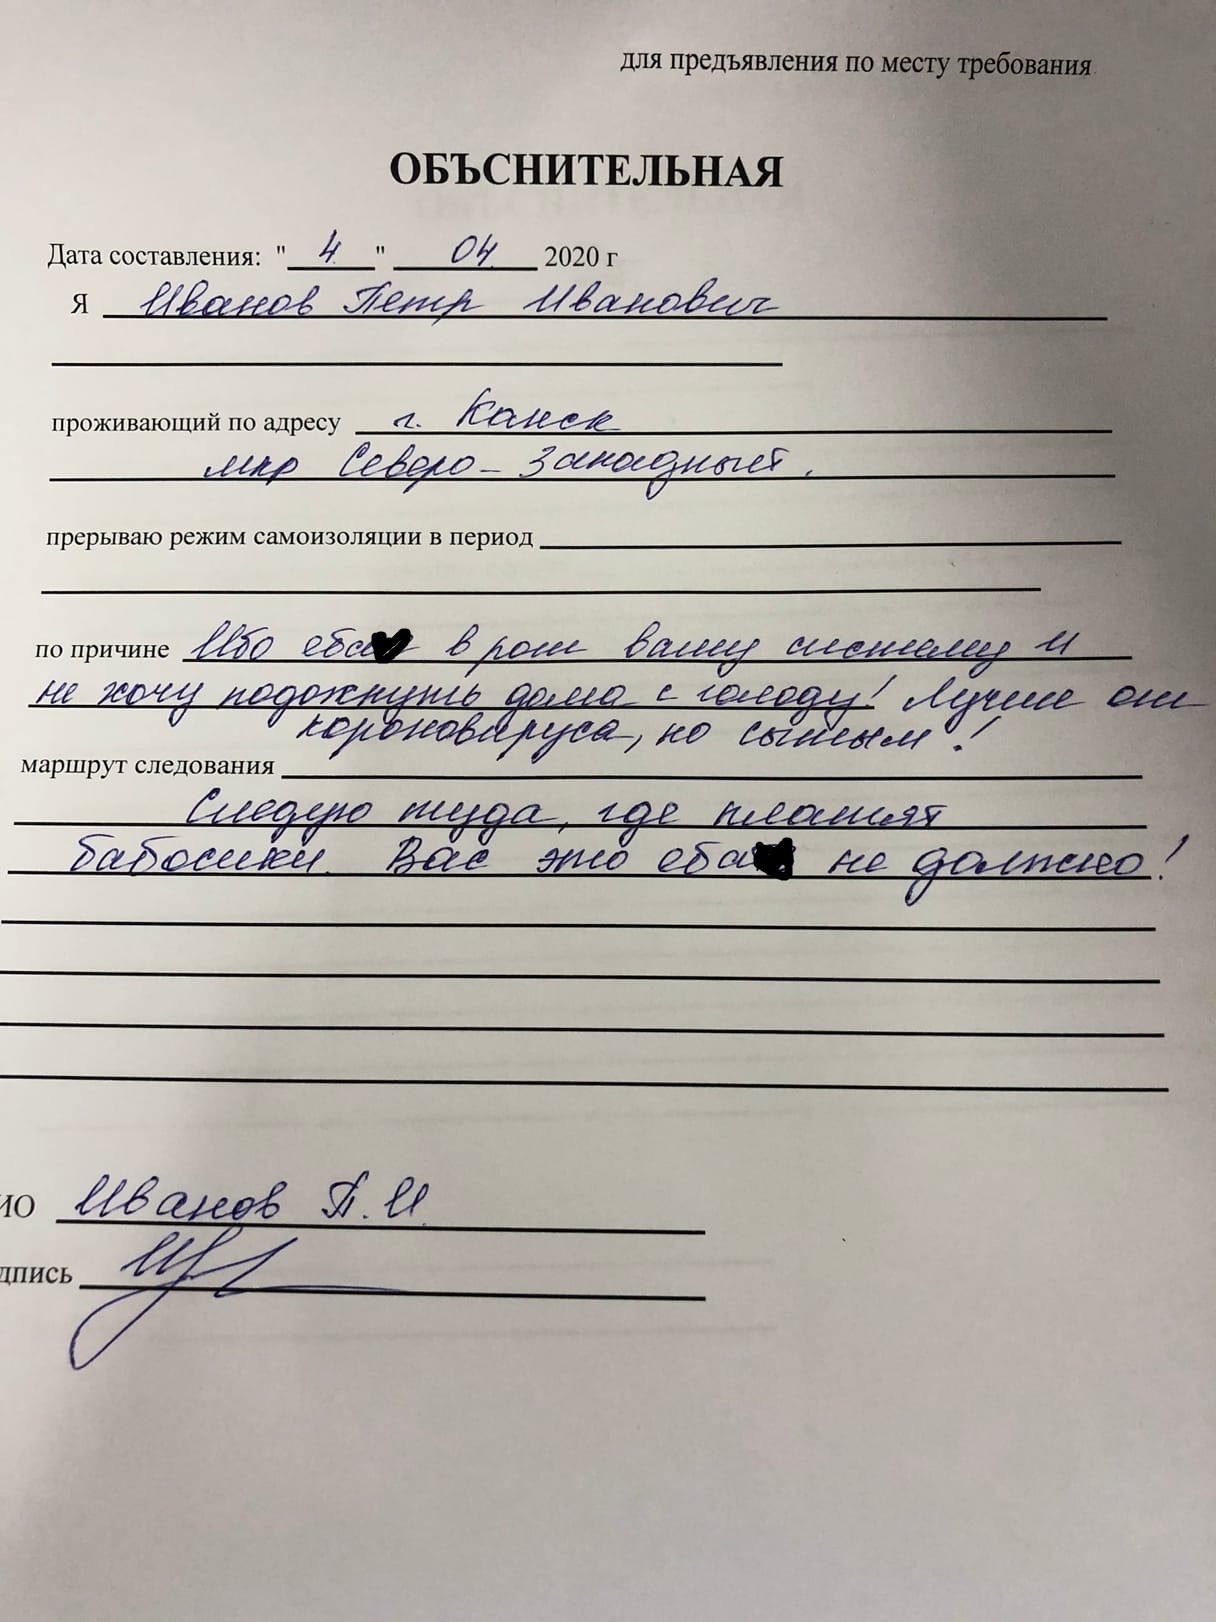 для предъявления по месту требования
ОБЪСНИТЕЛЬНАЯ
Дата составления: " 4 " 04 2020 г
Я Иванов Петр Иванович
проживающий по адресу г. Канск
мкр Северо-Западный.
прерываю режим самоизоляции в период
по причине Ибо еба в рот вашу систему и
не хочу подохнуть дома с голоду! Лучше от
короновируса, но сытым!
маршрут следования
Следую туда, где платят
бабосики. Вас это еба не должно!
ИО Иванов П.И.
дпись